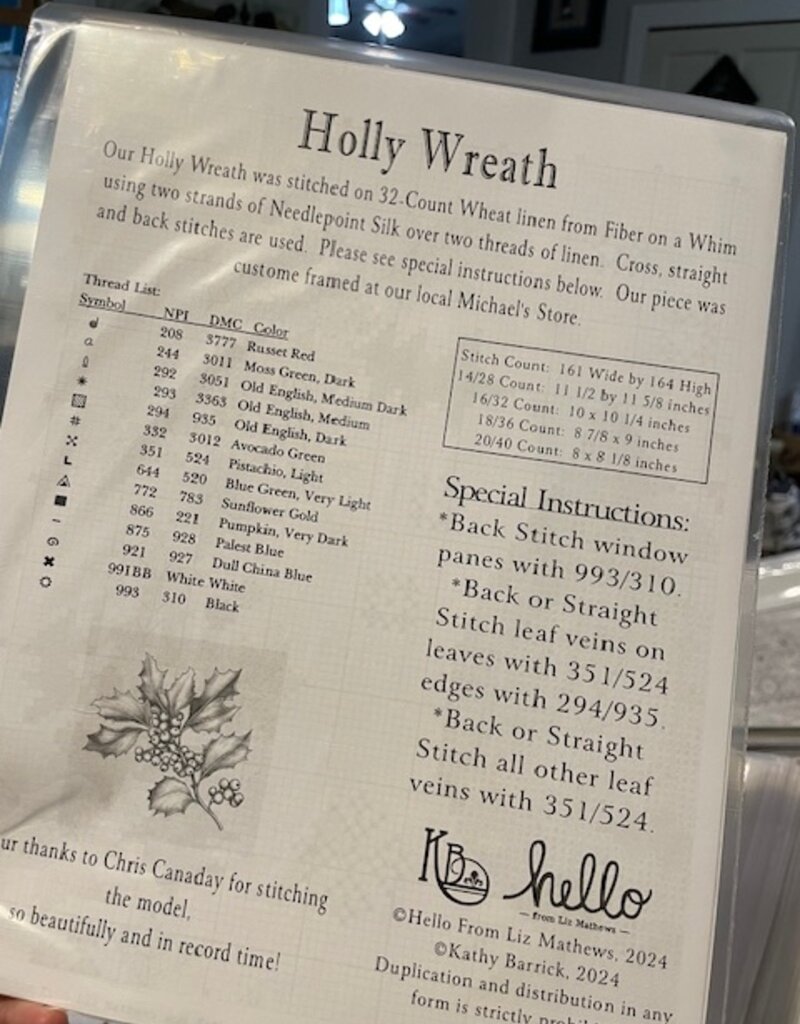 Holly Wreath
Our Holly Wreath was stitched on 32-Count Wheat linen from Fiber on a Whim
using two strands of Needlepoint Silk over two threads of linen. Cross, straight
and back stitches are used. Please see special instructions below. Our piece was
custome framed at our local Michael's Store.
Thread List:
Symbol NPI DMC Color
208 3777 Russet Red
244 3011 Moss Green, Dark
292 3051 Old English, Medium Dark
293 3363 Old English, Medium
294 935 Old English, Dark
332 3012 Avocado Green
351 524 Pistachio, Light
644 520 Blue Green, Very Light
772 783 Sunflower Gold
866 221 Pumpkin, Very Dark
875 928 Palest Blue
921 927 Dull China Blue
991BB White White
993 310 Black
Stitch Count: 161 Wide by 164 High
14/28 Count: 11 1/2 by 11 5/8 inches
16/32 Count: 10 x 10 1/4 inches
18/36 Count: 8 7/8 x 9 inches
20/40 Count: 8 x 8 1/8 inches
Special Instructions:
*Back Stitch window
panes with 993/310.
*Back or Straight
Stitch leaf veins on
leaves with 351/524
edges with 294/935.
*Back or Straight
Stitch all other leaf
veins with 351/524.
ur thanks to Chris Canaday for stitching
the model,
so beautifully and in record time!
KB hello
— from Liz Mathews —
©Hello From Liz Mathews, 2024
©Kathy Barrick, 2024
Duplication and distribution in any
form is strictly